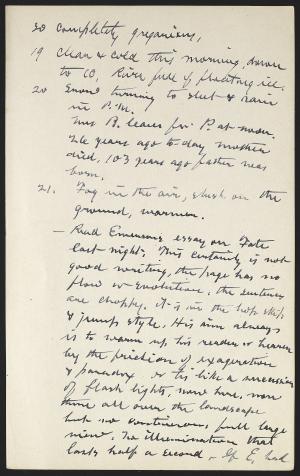 so completely gregarious,
19 Clear & cold this morning, down
to 10, River full of floating ice.
20 Snow turning to sleet & rain
in P.M.
Mrs B. leaves for P. at noon.
26 years ago to-day mother
died, 103 years ago father was
born.
21. Fog in the air, slush on the
ground, warmer.
— Read Emersons essay on Fate
last night. This certainly is not
good writing, the page has no
flow or evolution. the sentences
are choppy. it is in the hop skip
& jump style. His aim always
is to warm up his reader or hearer
by the friction of exageration
& paradox. or tis like a succession
of flash lights, now here, now
there all over the landscape
but no continuous, full large
view. The illumination that
lasts half a second — If E. had